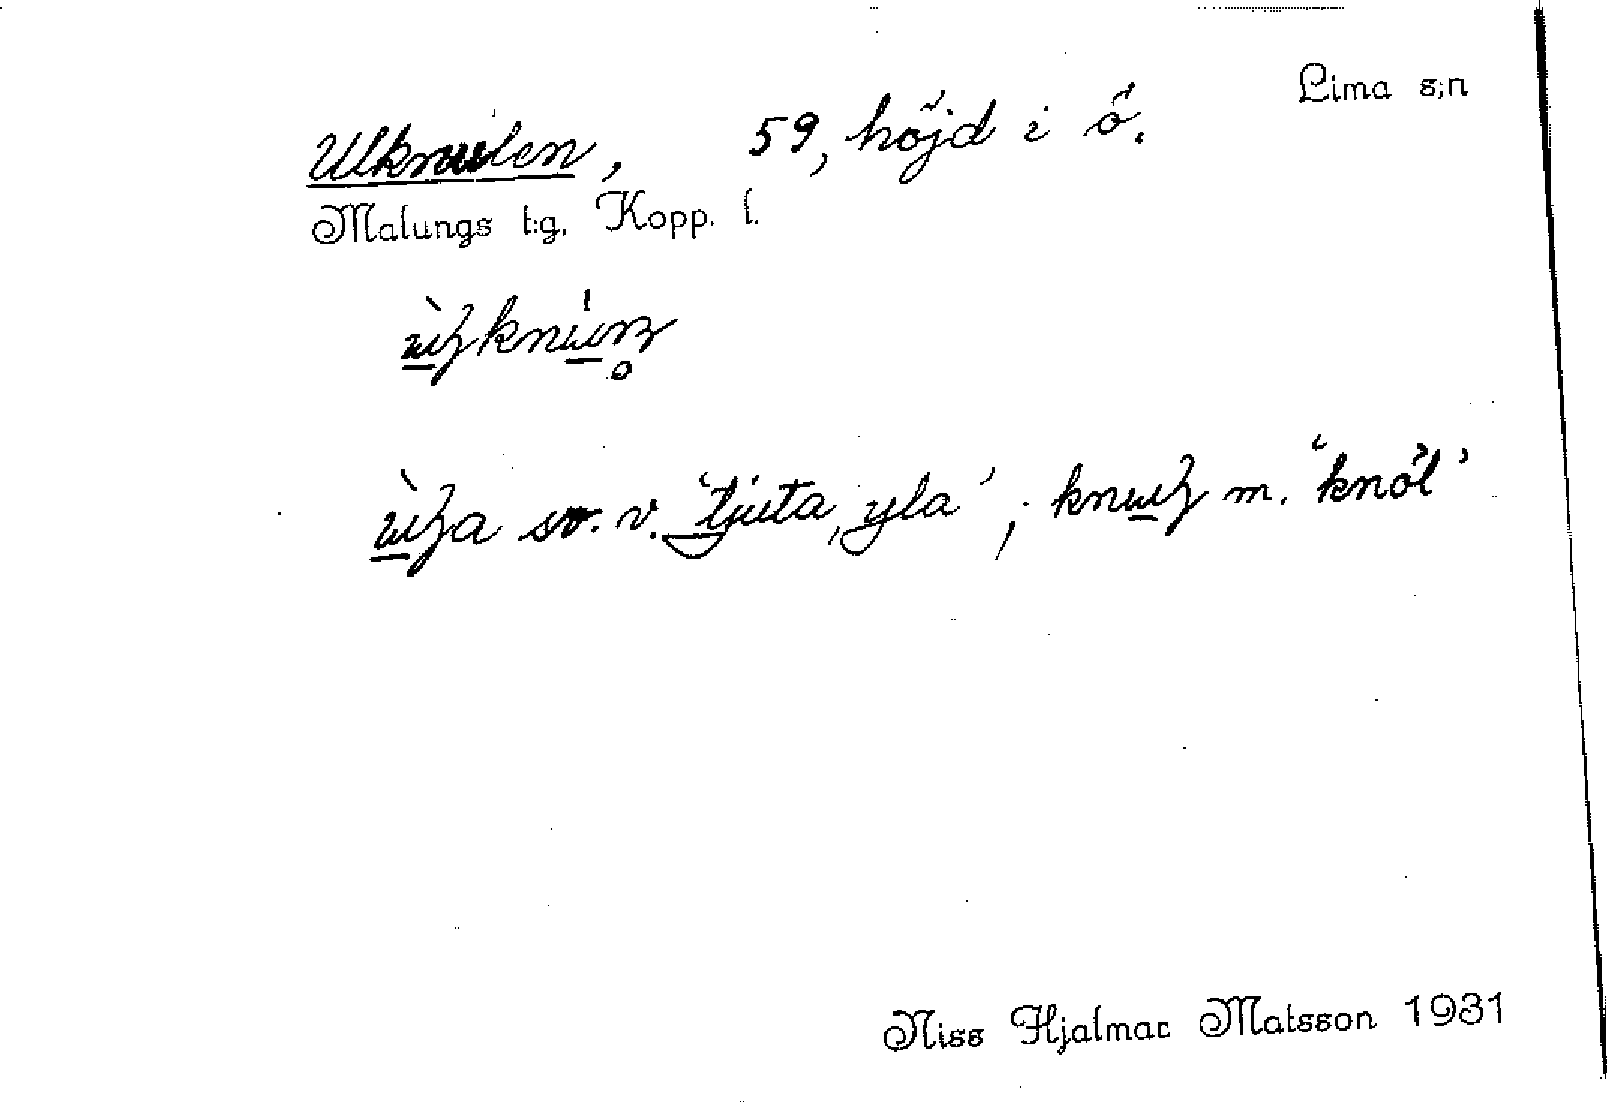 Lima s;n
Ulknulen, 59, höjd i ö.
Malungs t:g. Kopp. l.
sv. v. 'tjuta, yla'; m. 'knöl'
Niss Hjalmar Matsson 1931